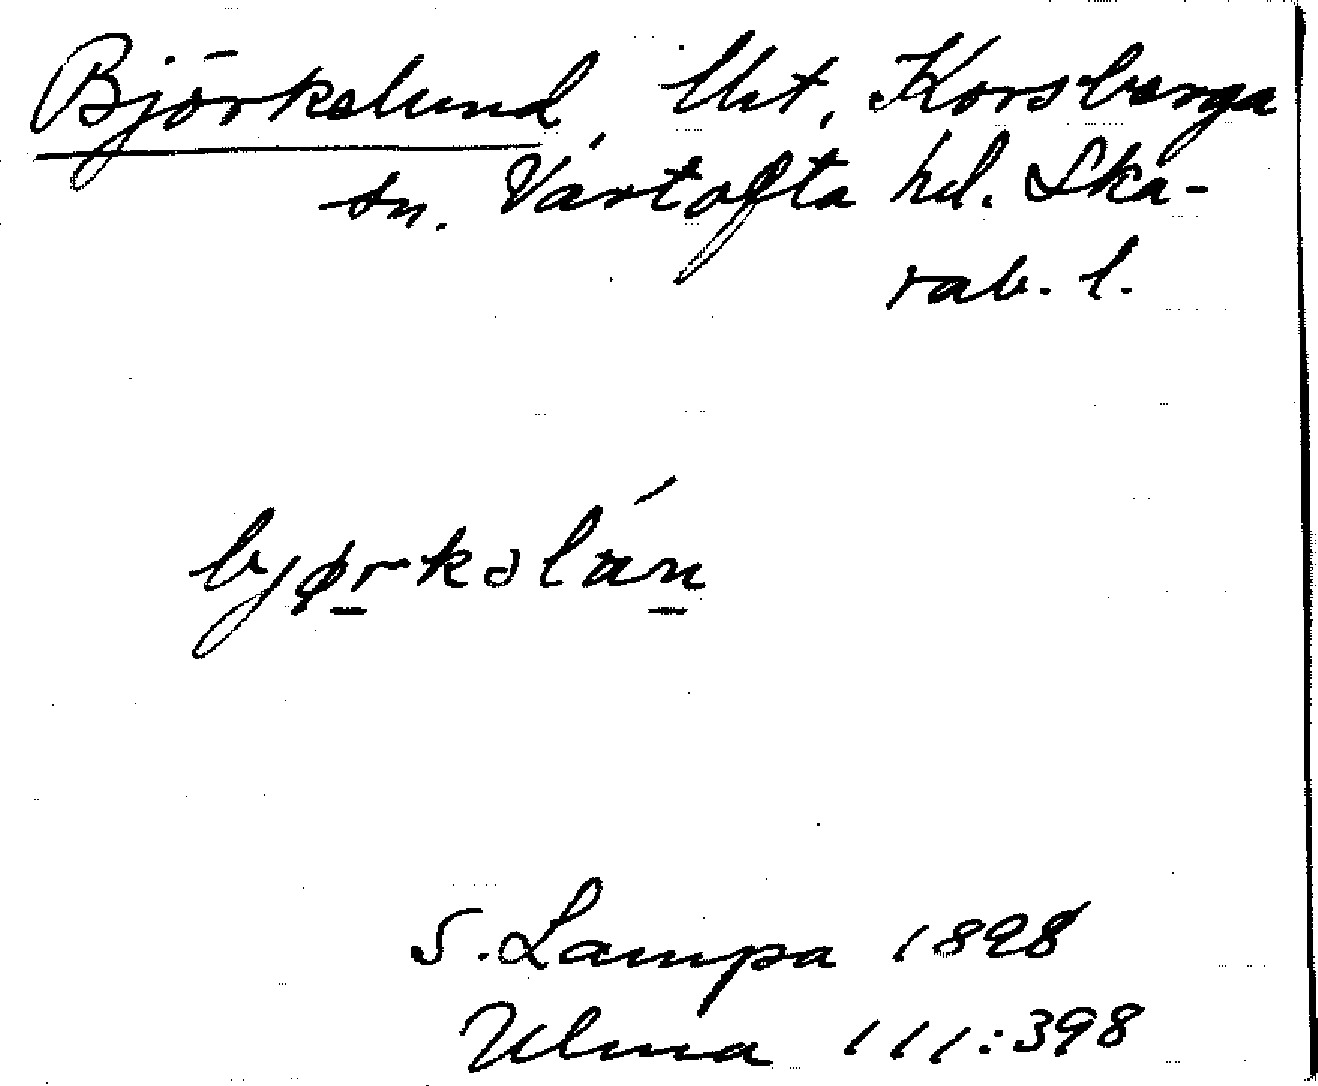 Björkelund, lht, Korsberga
sn. Vartofta hd. Ska-
rab. l.
bjørkəlán
S. Lampa 1898
Ulma 111:398